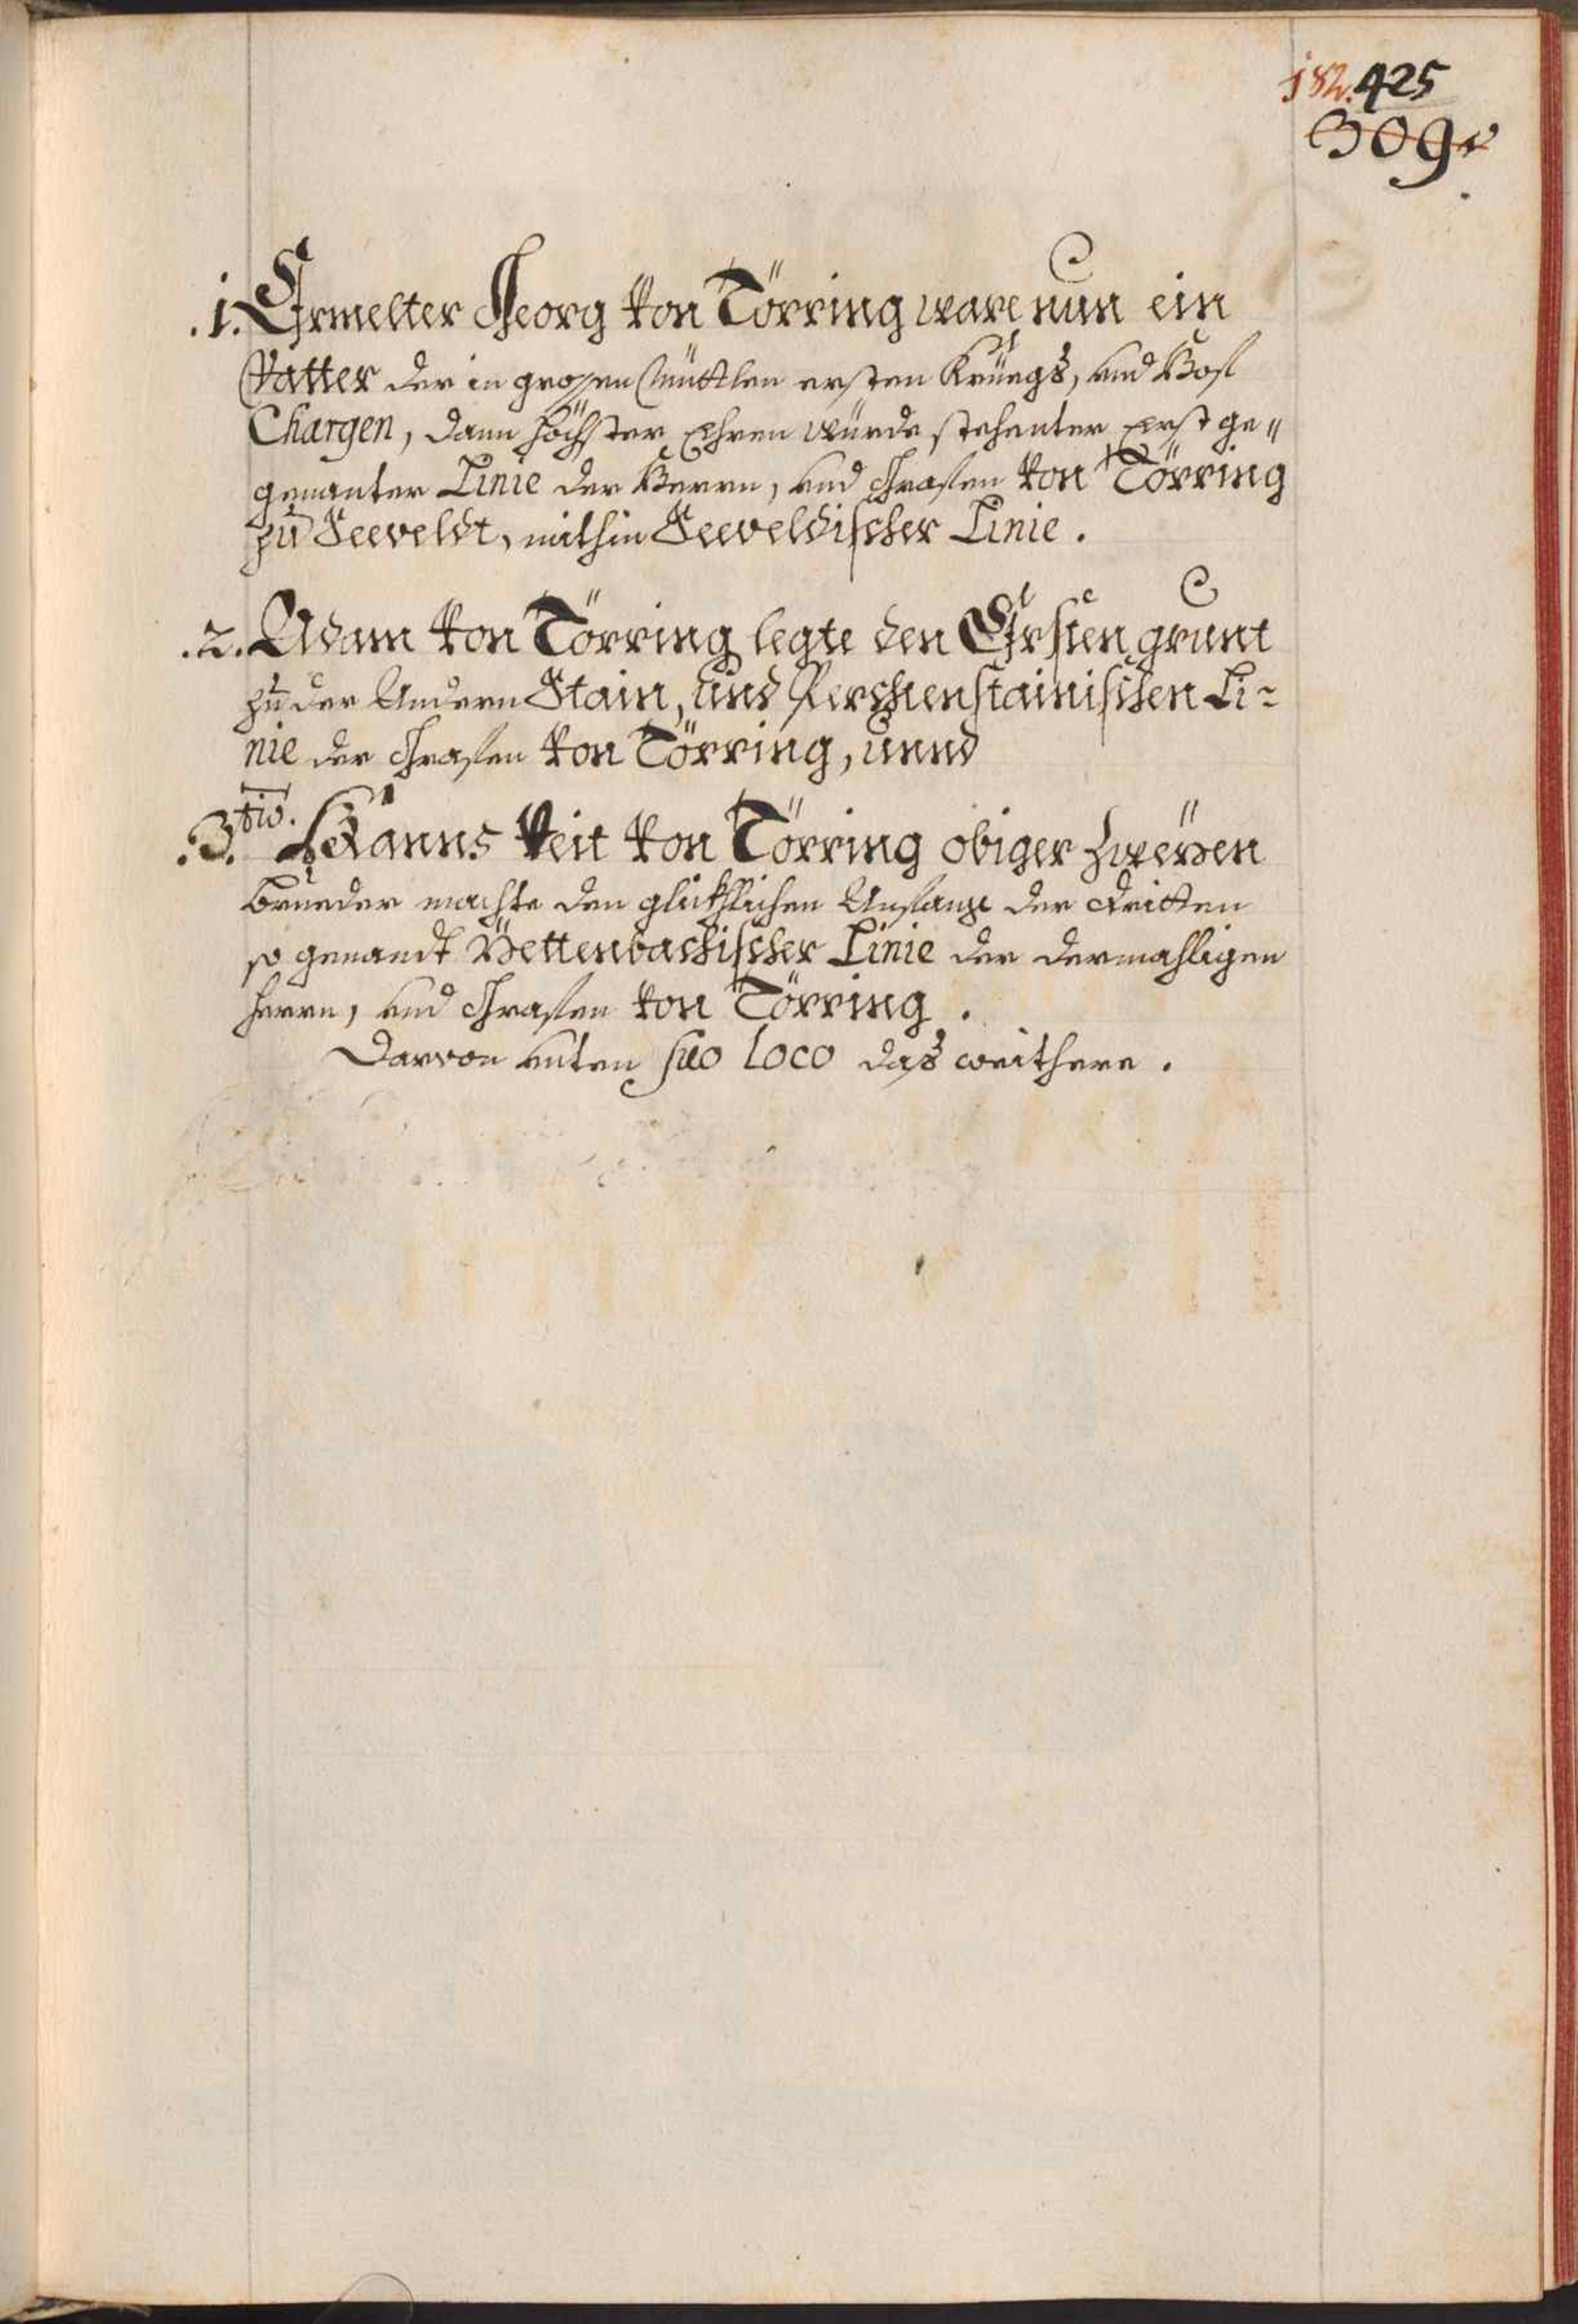 182. 425
309.
.1. Ermelter Georg von Törring ware nun ein
Vatter der in grossen Müttlen ersten Kriegs, und Hof
Chargen, dann höchster Ehren würde stehenter Erst ge=
genanter Linie der Herrn, und Grafen von Törring
zu Seeveldt, mithin Seeveldischer Linie.
.2. Adam von Törring legte den Ersten grunt
zu der Andern Stain, und Pertenstainischen Li=
nie der Grafen von Törring, unnd
.3.tio. Hanns Veit von Törring obiger zweyen
Brueder machte den glükhlichen Anfang der dritten
so genandt Jettenbachischer Linie der dermahligen
Herrn, und Grafen von Törring.
Darvon unten suo loco das weithere.